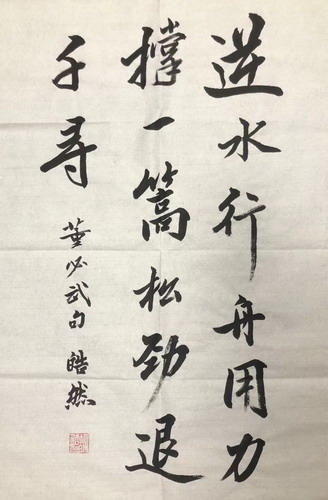 逆水行舟用力
撑一篙松劲退
千寻
董必武句 皓然